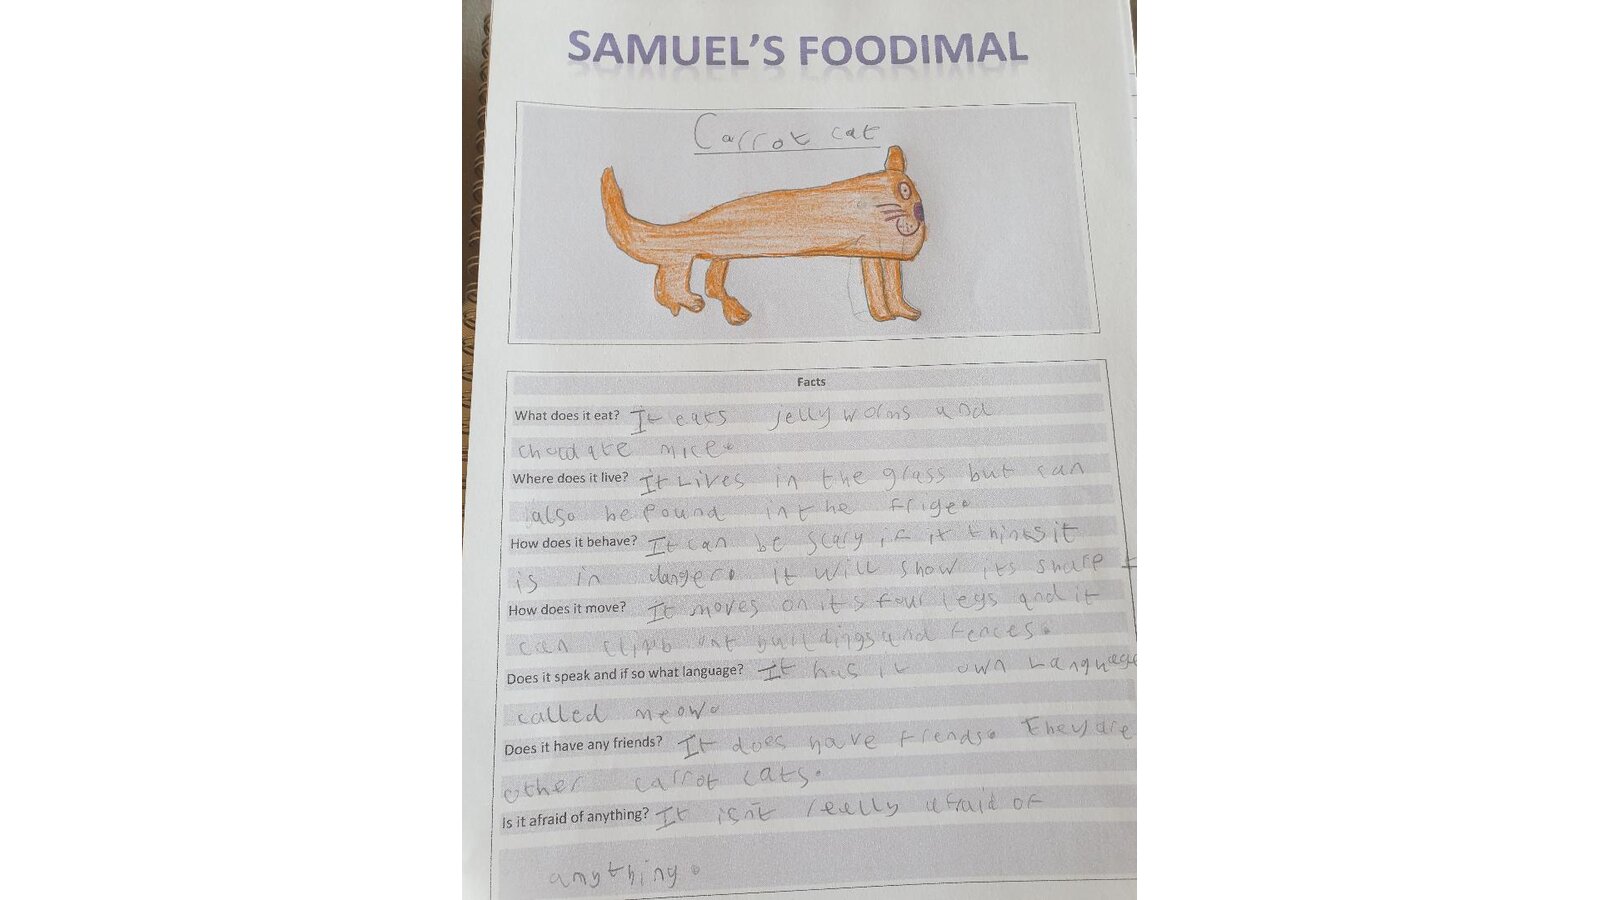 SAMUEL'S FOODIMAL
Carrot cat
Facts
What does it eat? It eats jelly worms and
chocolate mice.
Where does it live? It Lives in the grass but can
also be found in the frige.
How does it behave? It can be scary if it thinks it
is in danger. it will show its sharp
How does it move? It moves on it's four legs and it
can climb buildings and fences.
Does it speak and if so what language? It has it own Language
called meow.
Does it have any friends? It does have friends. They are
other carrot cats.
Is it afraid of anything? It isn't really afraid of
anything.